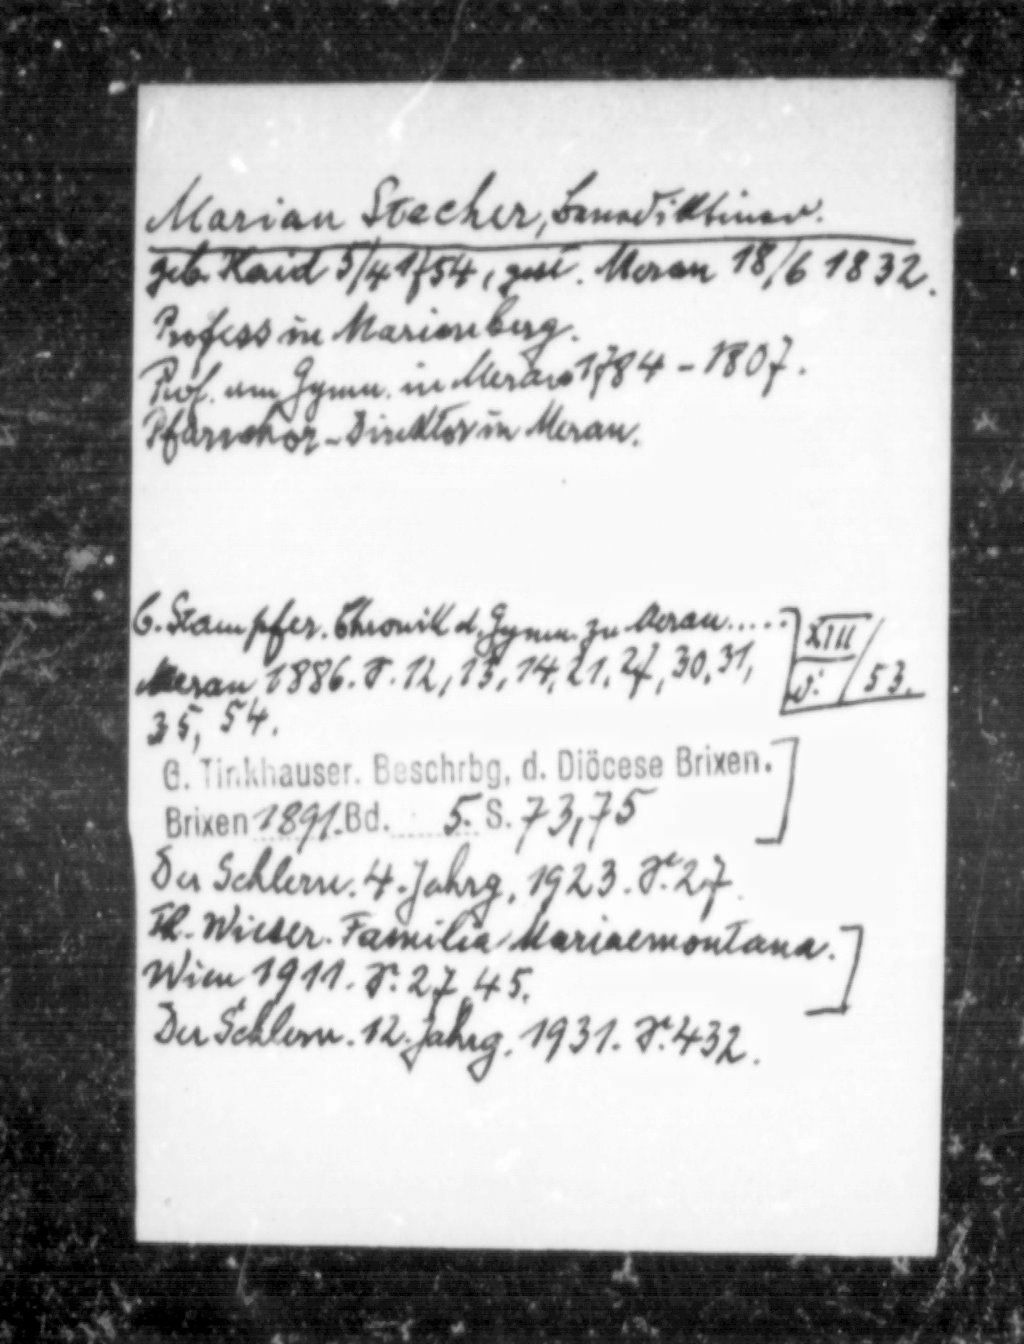 Marian Stecher, Benediktiner.
geb. Haid 5/4 1754, gest. Meran 18/6 1832.
Profess in Marienberg.
Prof. am Gymn. in Meran 1784-1807.
Pfarrchor-Direktor in Meran.
C. Stampfer. Chronik d. Gymn. zu Meran.....
XIII
Meran 1886. S. 12, 13, 14, 21, 27, 30, 31,
53.
35, 54.
G. Tinkhauser. Beschrbg, d. Diöcese Brixen.
Brixen 1891. Bd. 5. S. 73, 75
Der Schlern. 4. Jahrg, 1923. S. 27.
Th. Wieser. Familia Mariaemontana.
Wien 1911. S. 27, 45.
Der Schlern. 12. Jahrg. 1931. S. 432.